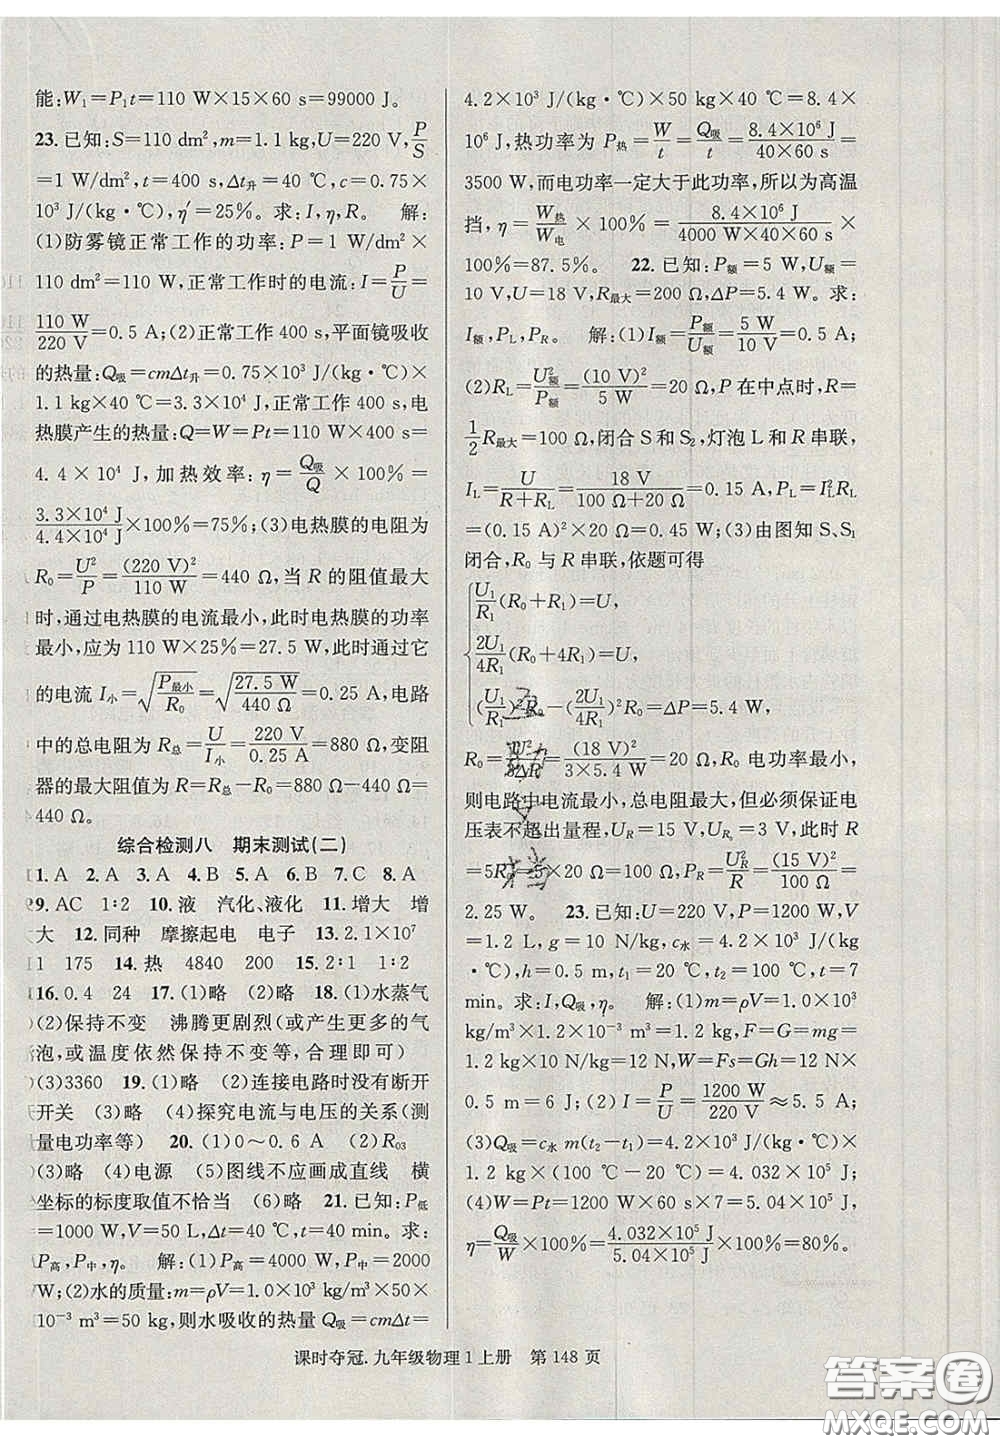 能:W₁=P₁t=110 W×15×60 s=99000 J。
23.已知:S=110 dm²,m=1.1 kg,U=220 V,P/S
=1 W/dm²,t=400 s,Δt升=40 ℃,c=0.75×
10³ J/(kg·℃),η′=25%。求:I,η,R。 解:
(1)防雾镜正常工作的功率:P=1 W/dm²×
110 dm²=110 W,正常工作时的电流:I=P/U=
110 W/220 V=0.5 A;(2)正常工作400 s,平面镜吸收
的热量:Q吸=cmΔt升=0.75×10³ J/(kg·℃)×
1.1 kg×40 ℃=3.3×10⁴ J,正常工作400 s,电
热膜产生的热量:Q=W=Pt=110 W×400 s=
4.4×10⁴ J,加热效率:η=Q吸/Q×100%=
3.3×10⁴ J/4.4×10⁴ J×100%=75%;(3)电热膜的电阻为
R₀=U²/P=(220 V)²/110 W=440 Ω,当R的阻值最大
时,通过电热膜的电流最小,此时电热膜的功率
最小,应为110 W×25%=27.5 W,此时通过它
的电流I小=√(P最小/R₀)=√(27.5 W/440 Ω)=0.25 A,电路
中的总电阻为R总=U/I小=220 V/0.25 A=880 Ω,变阻
器的最大阻值为R=R总-R₀=880 Ω-440 Ω
=440 Ω。
综合检测八 期末测试(二)
1.A 2.A 3.A 4.B 5.A 6.B 7.C 8.A
9.AC 1∶2 10.液 汽化、液化 11.增大 增
大 12.同种 摩擦起电 电子 13.2.1×10⁷
1 175 14.热 4840 200 15.2∶1 1∶2
16.0.4 24 17.(1)略 (2)略 18.(1)水蒸气
(2)保持不变 沸腾更剧烈(或产生更多的气
泡,或温度依然保持不变等,合理即可)
(3)3360 19.(1)略 (2)连接电路时没有断开
开关 (3)略 (4)探究电流与电压的关系(测
量电功率等) 20.(1)0～0.6 A (2)R₀₃
(3)略 (4)电源 (5)图线不应画成直线 横
坐标的标度取值不恰当 (6)略 21.已知:P低
=1000 W,V=50 L,Δt=40 ℃,t=40 min。求:
P高,P中,η。 解:(1)P高=4000 W,P中=2000
W;(2)水的质量:m=ρV=1.0×10³ kg/m³×50×
10⁻³ m³=50 kg,则水吸收的热量Q吸=cmΔt=
4.2×10³ J/(kg·℃)×50 kg×40 ℃=8.4×
10⁶ J,热功率为P热=W/t=Q吸/t=8.4×10⁶ J/40×60 s=
3500 W,而电功率一定大于此功率,所以为高温
挡,η=W热/W电×100%=8.4×10⁶ J/4000 W×40×60 s×
100%=87.5%。 22.已知:P额=5 W,U额=
10 V,U=18 V,R最大=200 Ω,ΔP=5.4 W。求:
I额,P_L,P_R。 解:(1)I额=P额/U额=5 W/10 V=0.5 A;
(2)R_L=U²额/P额=(10 V)²/5 W=20 Ω,P在中点时,R=
1/2R最大=100 Ω,闭合S和S₂,灯泡L和R串联,
I_L=U/R+R_L=18 V/100 Ω+20 Ω=0.15 A,P_L=I²_LR_L
=(0.15 A)²×20 Ω=0.45 W;(3)由图知S、S₁
闭合,R₀与R串联,依题可得
U₁/R₁(R₀+R₁)=U,
2U₁/4R₁(R₀+4R₁)=U,
(U₁/R₁)²R₀-(2U₁/4R₁)²R₀=ΔP=5.4 W,
R₀=U²/3ΔP=(18 V)²/3×5.4 W=20 Ω,R₀电功率最小,
则电路中电流最小,总电阻最大。但必须保证电
压表不超出量程,U_R=15 V,U_R₀=3 V,此时R
=5R₀=5×20 Ω=100 Ω,P_R=U²_R/R=(15 V)²/100 Ω=
2.25 W。 23.已知:U=220 V,P=1200 W,V
=1.2 L,g=10 N/kg,c水=4.2×10³ J/(kg
·℃),h=0.5 m,t₁=20 ℃,t₂=100 ℃,t=7
min。求:I,Q吸,η。 解:(1)m=ρV=1.0×10³
kg/m³×1.2×10⁻³ m³=1.2 kg,F=G=mg=
1.2 kg×10 N/kg=12 N,W=Fs=Gh=12 N×
0.5 m=6 J;(2)I=P/U=1200 W/220 V≈5.5 A;
(3)Q吸=c水m(t₂-t₁)=4.2×10³ J/(kg·℃)
×1.2 kg×(100 ℃-20 ℃)=4.032×10⁵ J;
(4)W=Pt=1200 W×60 s×7=5.04×10⁵ J,
η=Q吸/W×100%=4.032×10⁵ J/5.04×10⁵ J×100%=80%。
课时夺冠.九年级物理1上册 第148页
答案圈
MXQE.COM